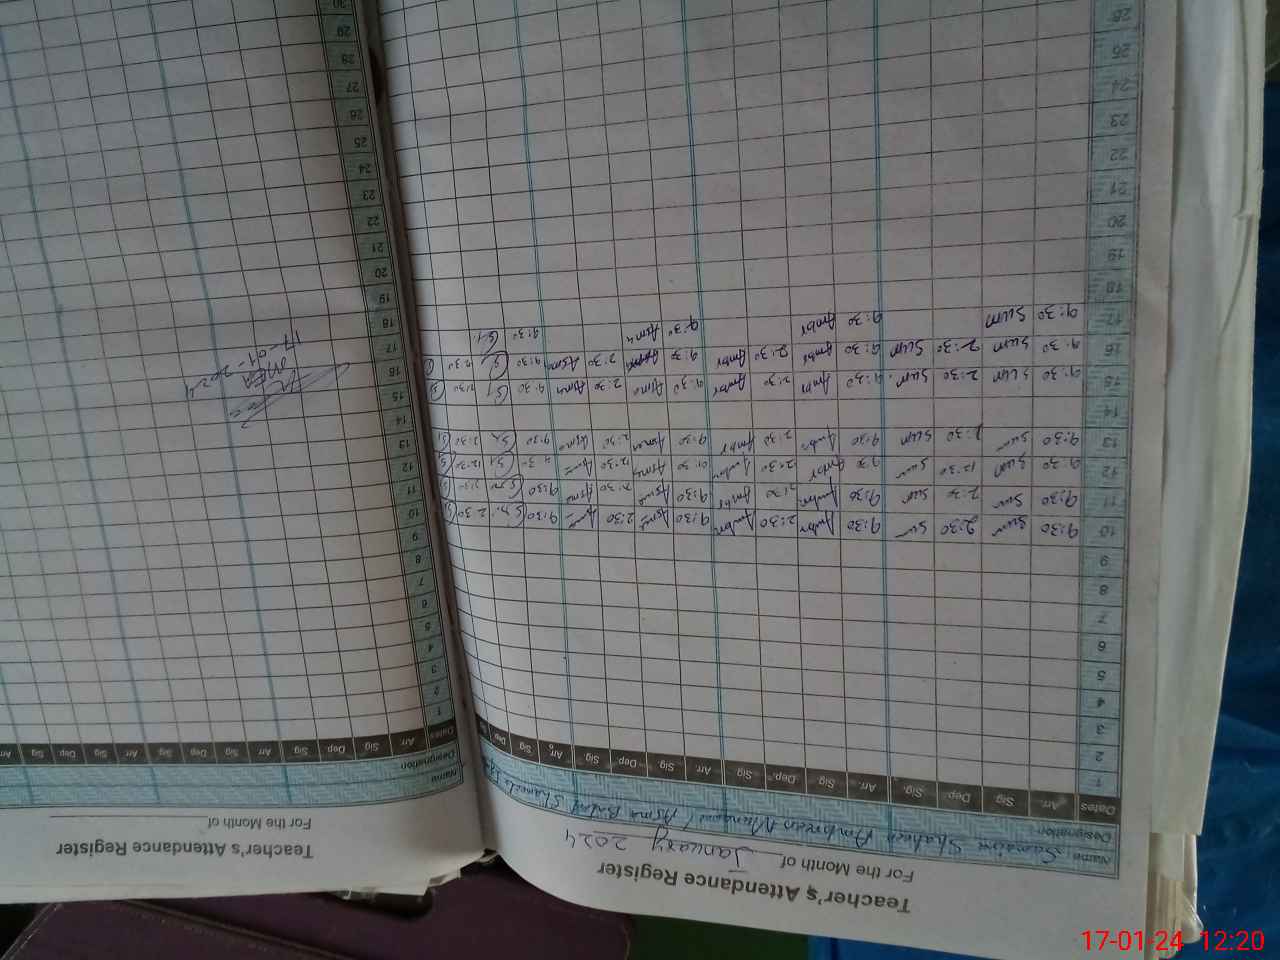 Teacher's Attendance Register
For the Month of January 2024
Name: Sumaira Shaheen Ambreen Asma Shameela
Designation:
Dates Arr. Sig Dep. Sig. Arr. Sig Dep. Sig Arr. Sig Dep. Sig Arr. Sig Dep
1
2
3
4
5
6
7
8
9
10 9:30 Sum 2:30 Sum 9:30 Ambr 2:30 Ambr 9:30 Asma 2:30 Asma 9:30 2:30
11 9:30 Sum 2:30 Sum 9:30 Ambr 2:30 Ambr 9:30 Asma 2:30 Asma 9:30 2:30
12 9:30 Sum 12:30 Sum 9:30 Ambr 12:30 Ambr 9:30 Asma 12:30 Asma 9:30 12:30
13 9:30 Sum 2:30 Sum 9:30 Ambr 2:30 Ambr 9:30 Asma 2:30 Asma 9:30 2:30
14
15 9:30 Sum 2:30 Sum 9:30 Ambr 2:30 Ambr 9:30 Asma 2:30 Asma 9:30 2:30
16 9:30 Sum 2:30 Sum 9:30 Ambr 2:30 Ambr 9:30 Asma 2:30 Asma 9:30 2:30
17 9:30 Sum 9:30 Ambr 9:30 Asma 9:30
18
19
20
21
22
23
24
25
26
Teacher's Attendance Register
For the Month of
Name
Designation
Dates Arr Sig Dep Sig Arr Sig Dep Sig Arr Sig Dep Sig Arr
1
2
3
4
5
6
7
8
9
10
11
12
13
14
15
16
17
18
19
20
21
22
23
24
25
26
27
28
29
30
MEA
17-01-2024
17-01-24 12:20